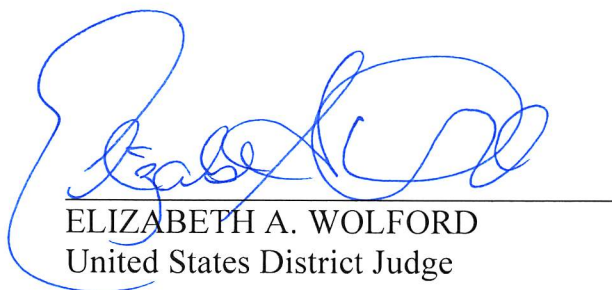 ELIZABETH A. WOLFORD
United States District Judge